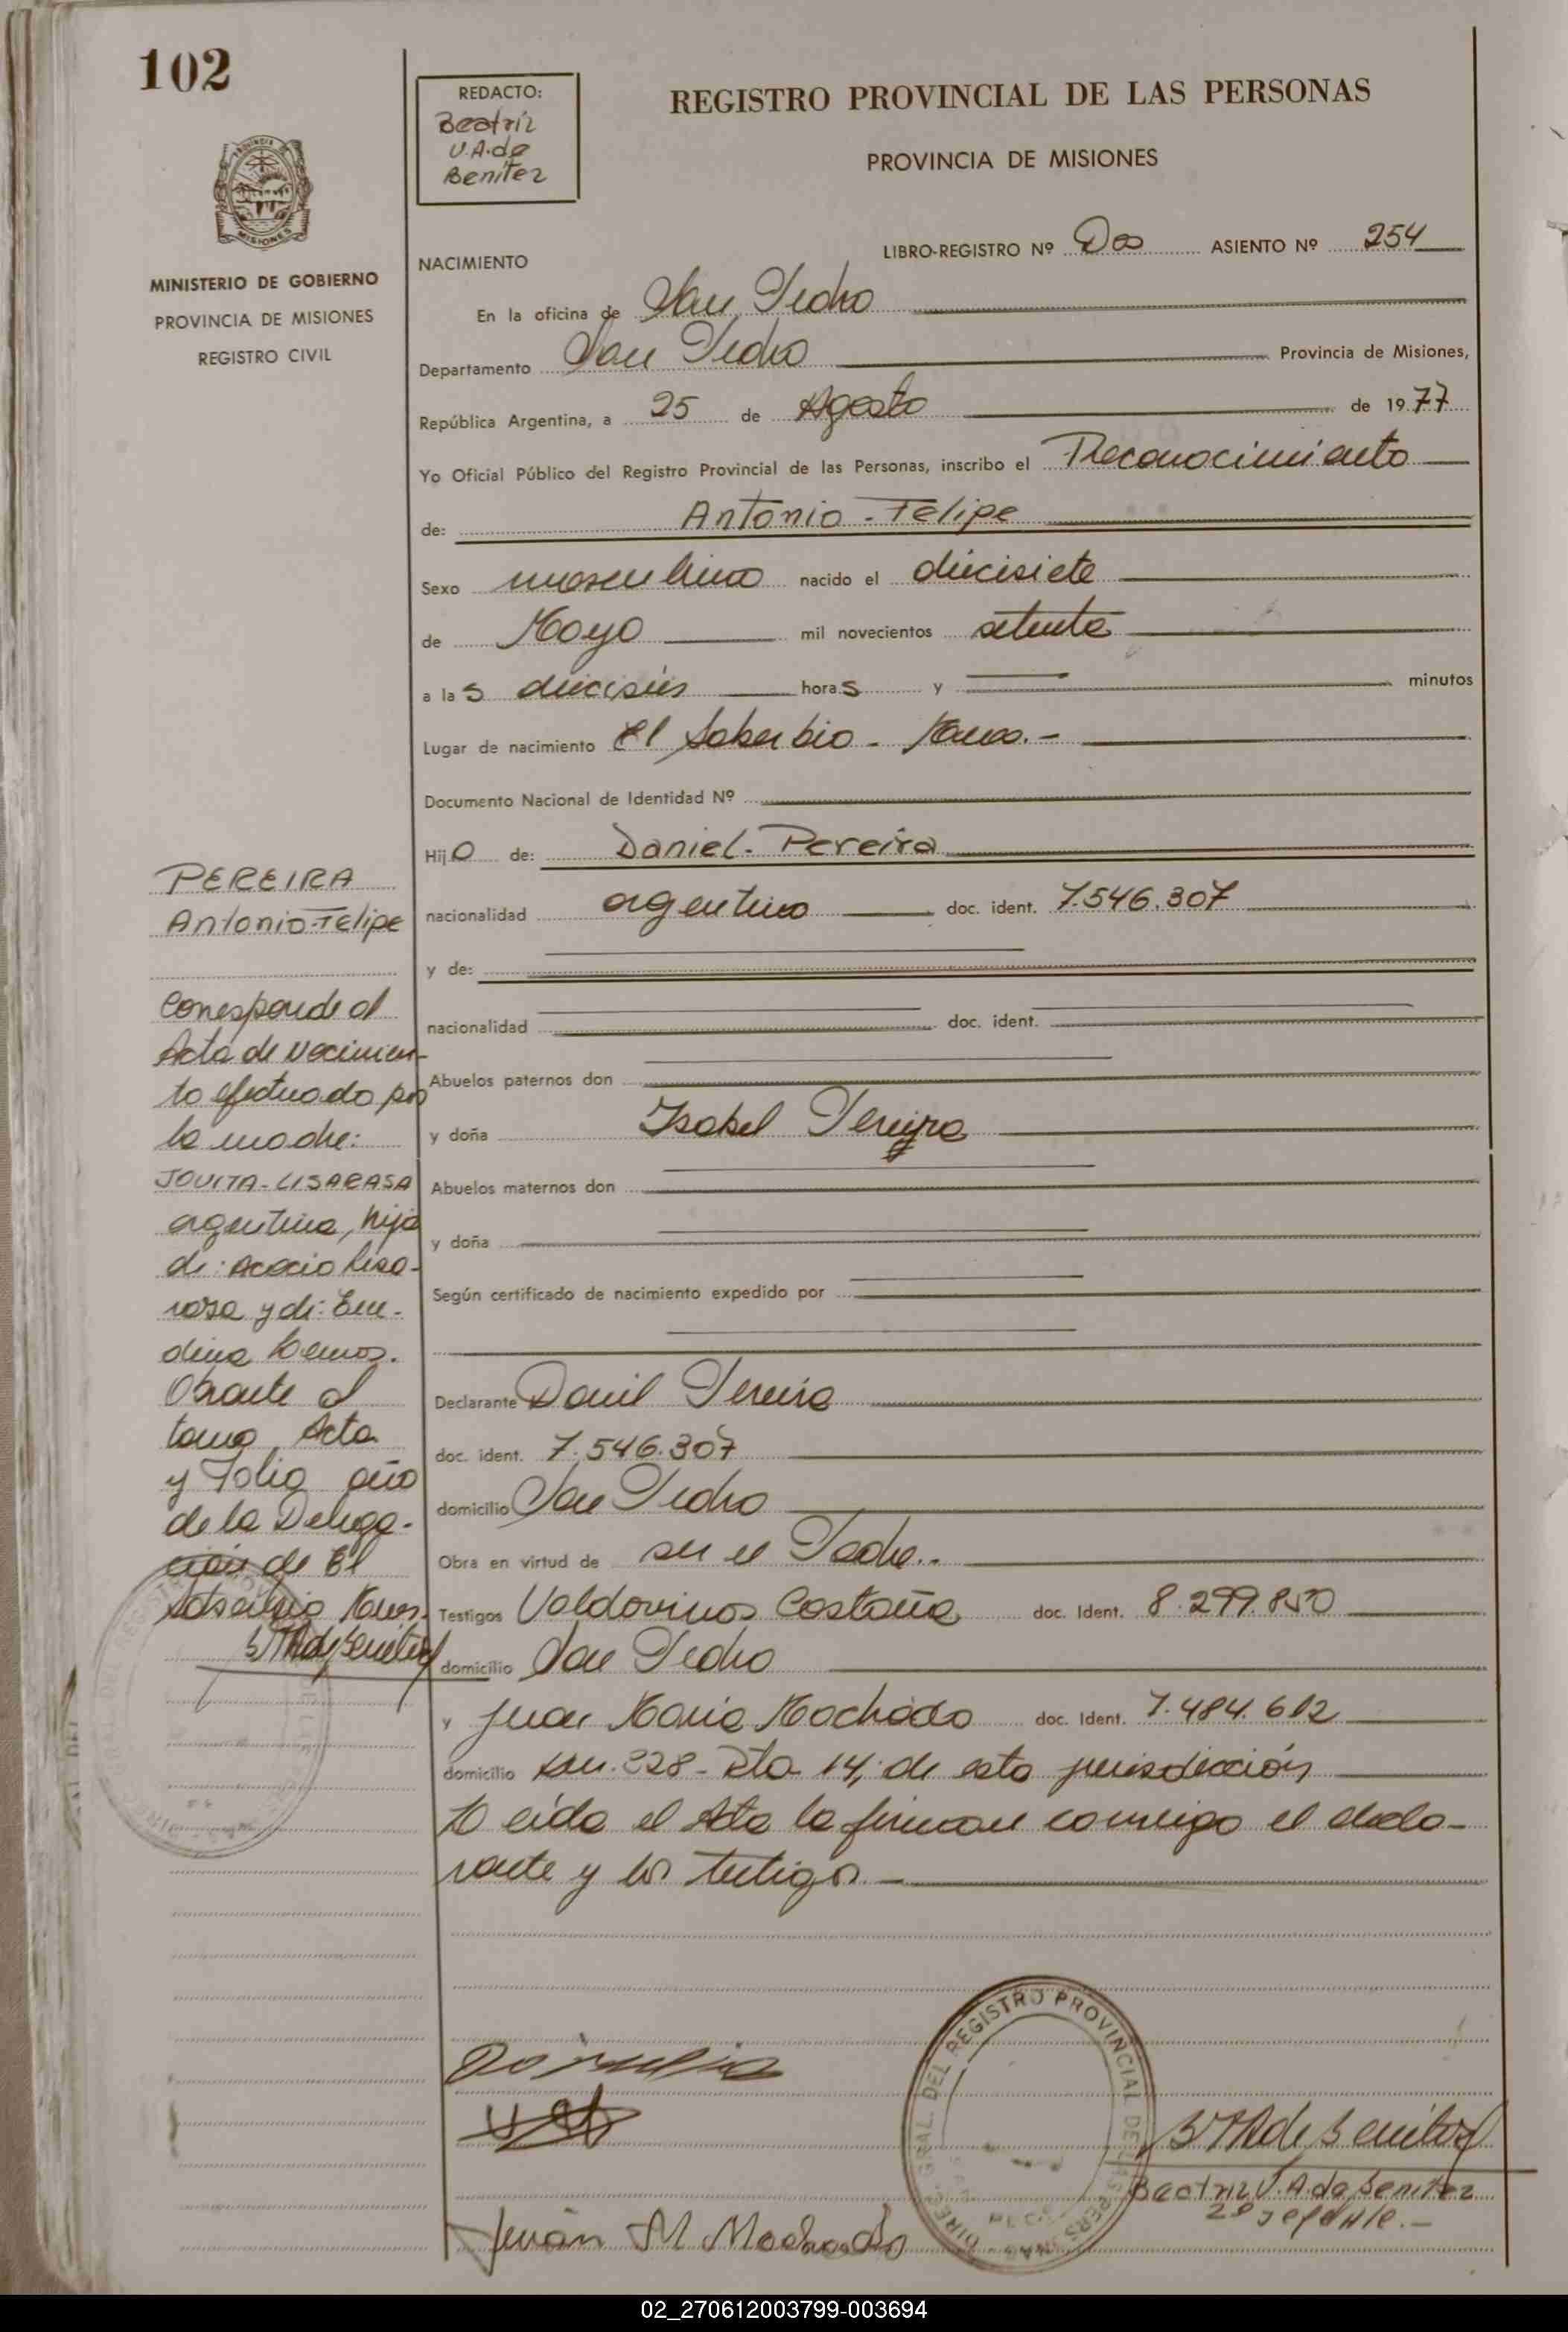 102
REDACTO:
Beatriz
V.A. de
Benitez
REGISTRO PROVINCIAL DE LAS PERSONAS
PROVINCIA DE MISIONES
MISIONES
MINISTERIO DE GOBIERNO
PROVINCIA DE MISIONES
REGISTRO CIVIL
LIBRO-REGISTRO Nº Dos ASIENTO Nº 254
NACIMIENTO
En la oficina de San Pedro
Departamento San Pedro Provincia de Misiones,
República Argentina, a 25 de Agosto de 1977
Yo Oficial Público del Registro Provincial de las Personas, inscribo el Reconocimiento
de: Antonio-Felipe
Sexo masculino nacido el diecisiete
de Mayo mil novecientos setenta
a las dieciséis horas y minutos
Lugar de nacimiento El Soberbio - Mnes.-
Documento Nacional de Identidad Nº
Hijo de: Daniel-Pereira
nacionalidad argentino doc. ident. 7.546.307
y de:
nacionalidad doc. ident.
Abuelos paternos don
y doña Isabel Pereyra
Abuelos maternos don
y doña
Según certificado de nacimiento expedido por
Declarante Daniel Pereira
doc. ident. 7.546.307
domicilio San Pedro
Obra en virtud de ser el Padre..
Testigos Valdovinos Costaña doc. Ident. 8.299.850
domicilio San Pedro
y Juan Maria Machado doc. Ident. 7.484.612
domicilio km. 228 - Rta 14, de esta jurisdicción
Leída el Acta la firman conmigo el decla-
rante y los testigos.-
PEREIRA
Antonio-Felipe
Corresponde al
Acta de nacimien-
to efectuado por
la madre:
JOVITA-LISARASA
argentina, hija
de: Acacio Lisa-
rasa y de: Ene-
dina Lemos.
Obrante al
tomo Acta
y Folio año
de la Delega-
ción de El
Soberbio Mnes.
BVAdeBenitez
Juan M Machado
DIREC. GRAL. DEL REGISTRO PROVINCIAL DE LAS PERSONAS
BVAdeBenitez
Beatriz V.A. de Benitez
02_270612003799-003694